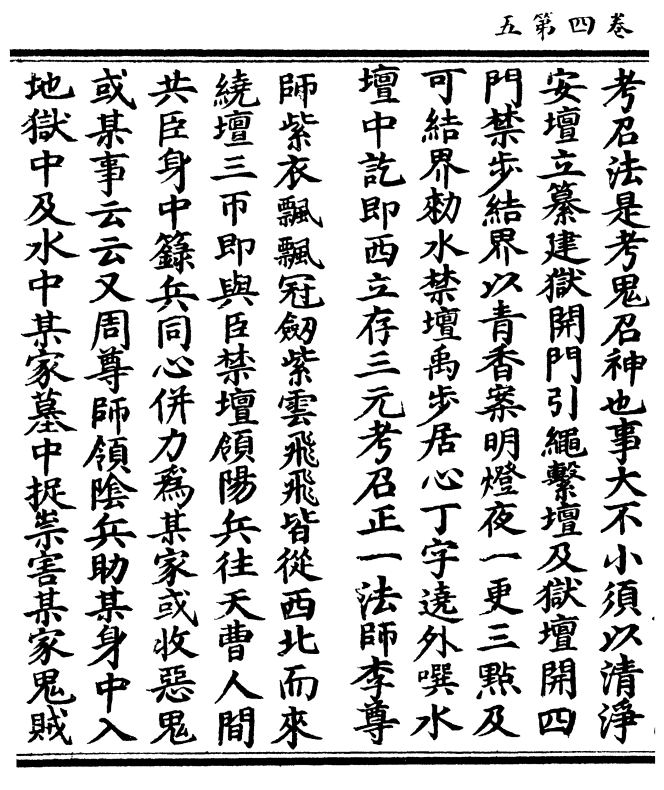 卷四第五
考召法是考鬼召神也事大不小須以清淨
安壇立纂建獄開門引繩繫壇及獄壇開四
門禁步結界以青香案明燈夜一更三點及
可結界勑水禁壇禹步居心丁字遶外噀水
壇中訖即西立存三元考召正一法師李尊
師紫衣飄飄冠劒紫雲飛飛皆從西北而來
繞壇三帀即與臣禁壇領陽兵往天曹人間
共臣身中籙兵同心併力爲某家或收惡鬼
或某事云云又周尊師領陰兵助某身中入
地獄中及水中某家墓中捉祟害某家鬼賊